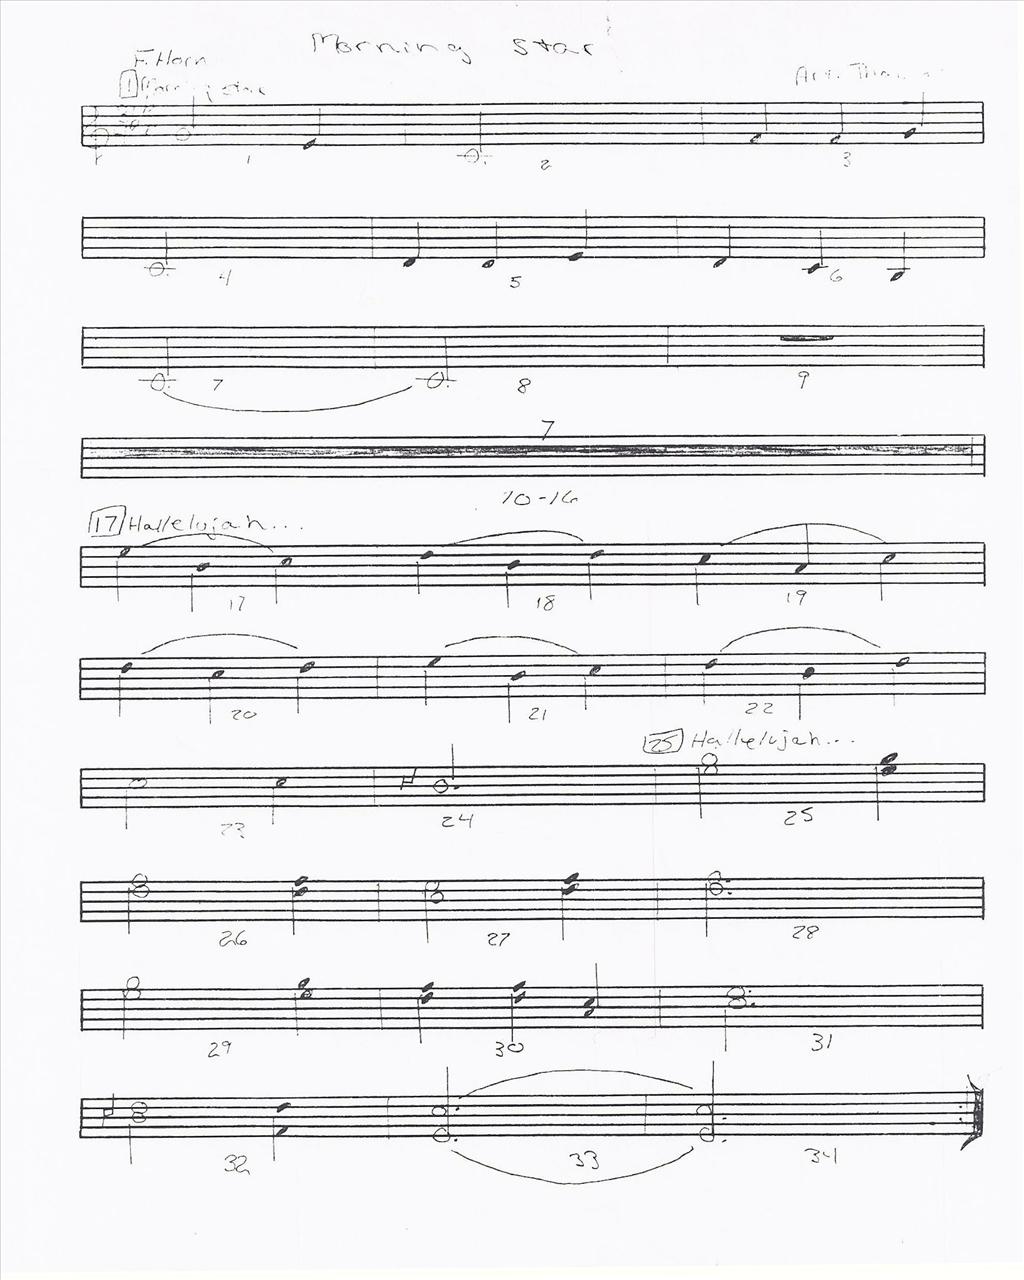 Morning star
F. Horn
1 Morning star
Arr.
1 2 3
4 5 6
7 8 9
7
10-16
17 Hallelujah...
17 18 19
20 21 22
25 Hallelujah...
23 24 25
26 27 28
29 30 31
32 33 34